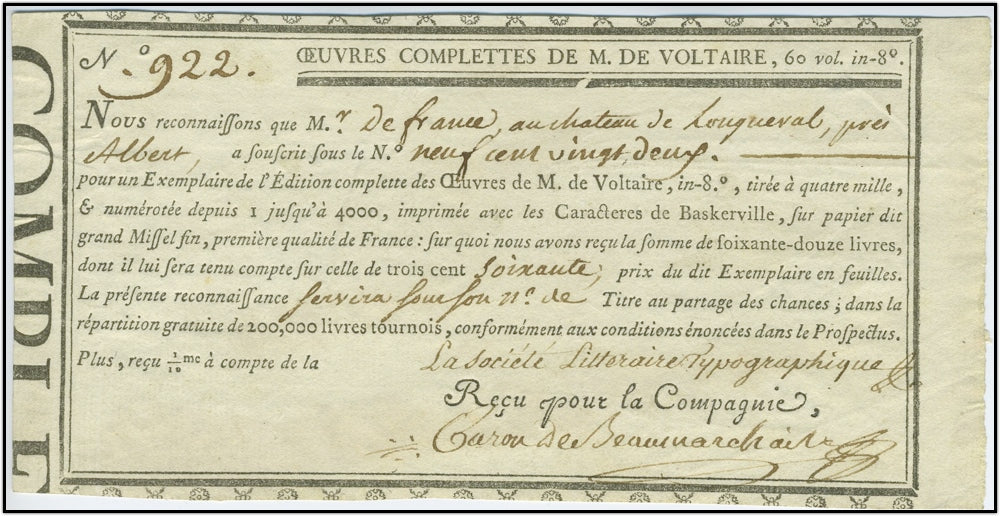 COMPLE
N.º 922. ŒUVRES COMPLETTES DE M. DE VOLTAIRE, 60 vol. in-8º.
Nous reconnaiſſons que M.r De france, au chateau de Longueval, près
Albert, a ſouſcrit ſous le N.º neuf cent vingt deux.
pour un Exemplaire de l'Édition complette des Œuvres de M. de Voltaire, in-8.º, tirée à quatre mille,
& numérotée depuis 1 juſqu'à 4000, imprimée avec les Caracteres de Baskerville, ſur papier dit
grand Miſſel fin, première qualité de France : ſur quoi nous avons reçu la ſomme de ſoixante-douze livres,
dont il lui ſera tenu compte ſur celle de trois cent soixante, prix du dit Exemplaire en feuilles.
La préſente reconnaiſſance servira sous son n.º de Titre au partage des chances ; dans la
répartition gratuite de 200,000 livres tournois, conformément aux conditions énoncées dans le Proſpectus.
Plus, reçu 1/10 me à compte de la La société Litteraire Typographique
Reçu pour la Compagnie,
Caron de Beaumarchais